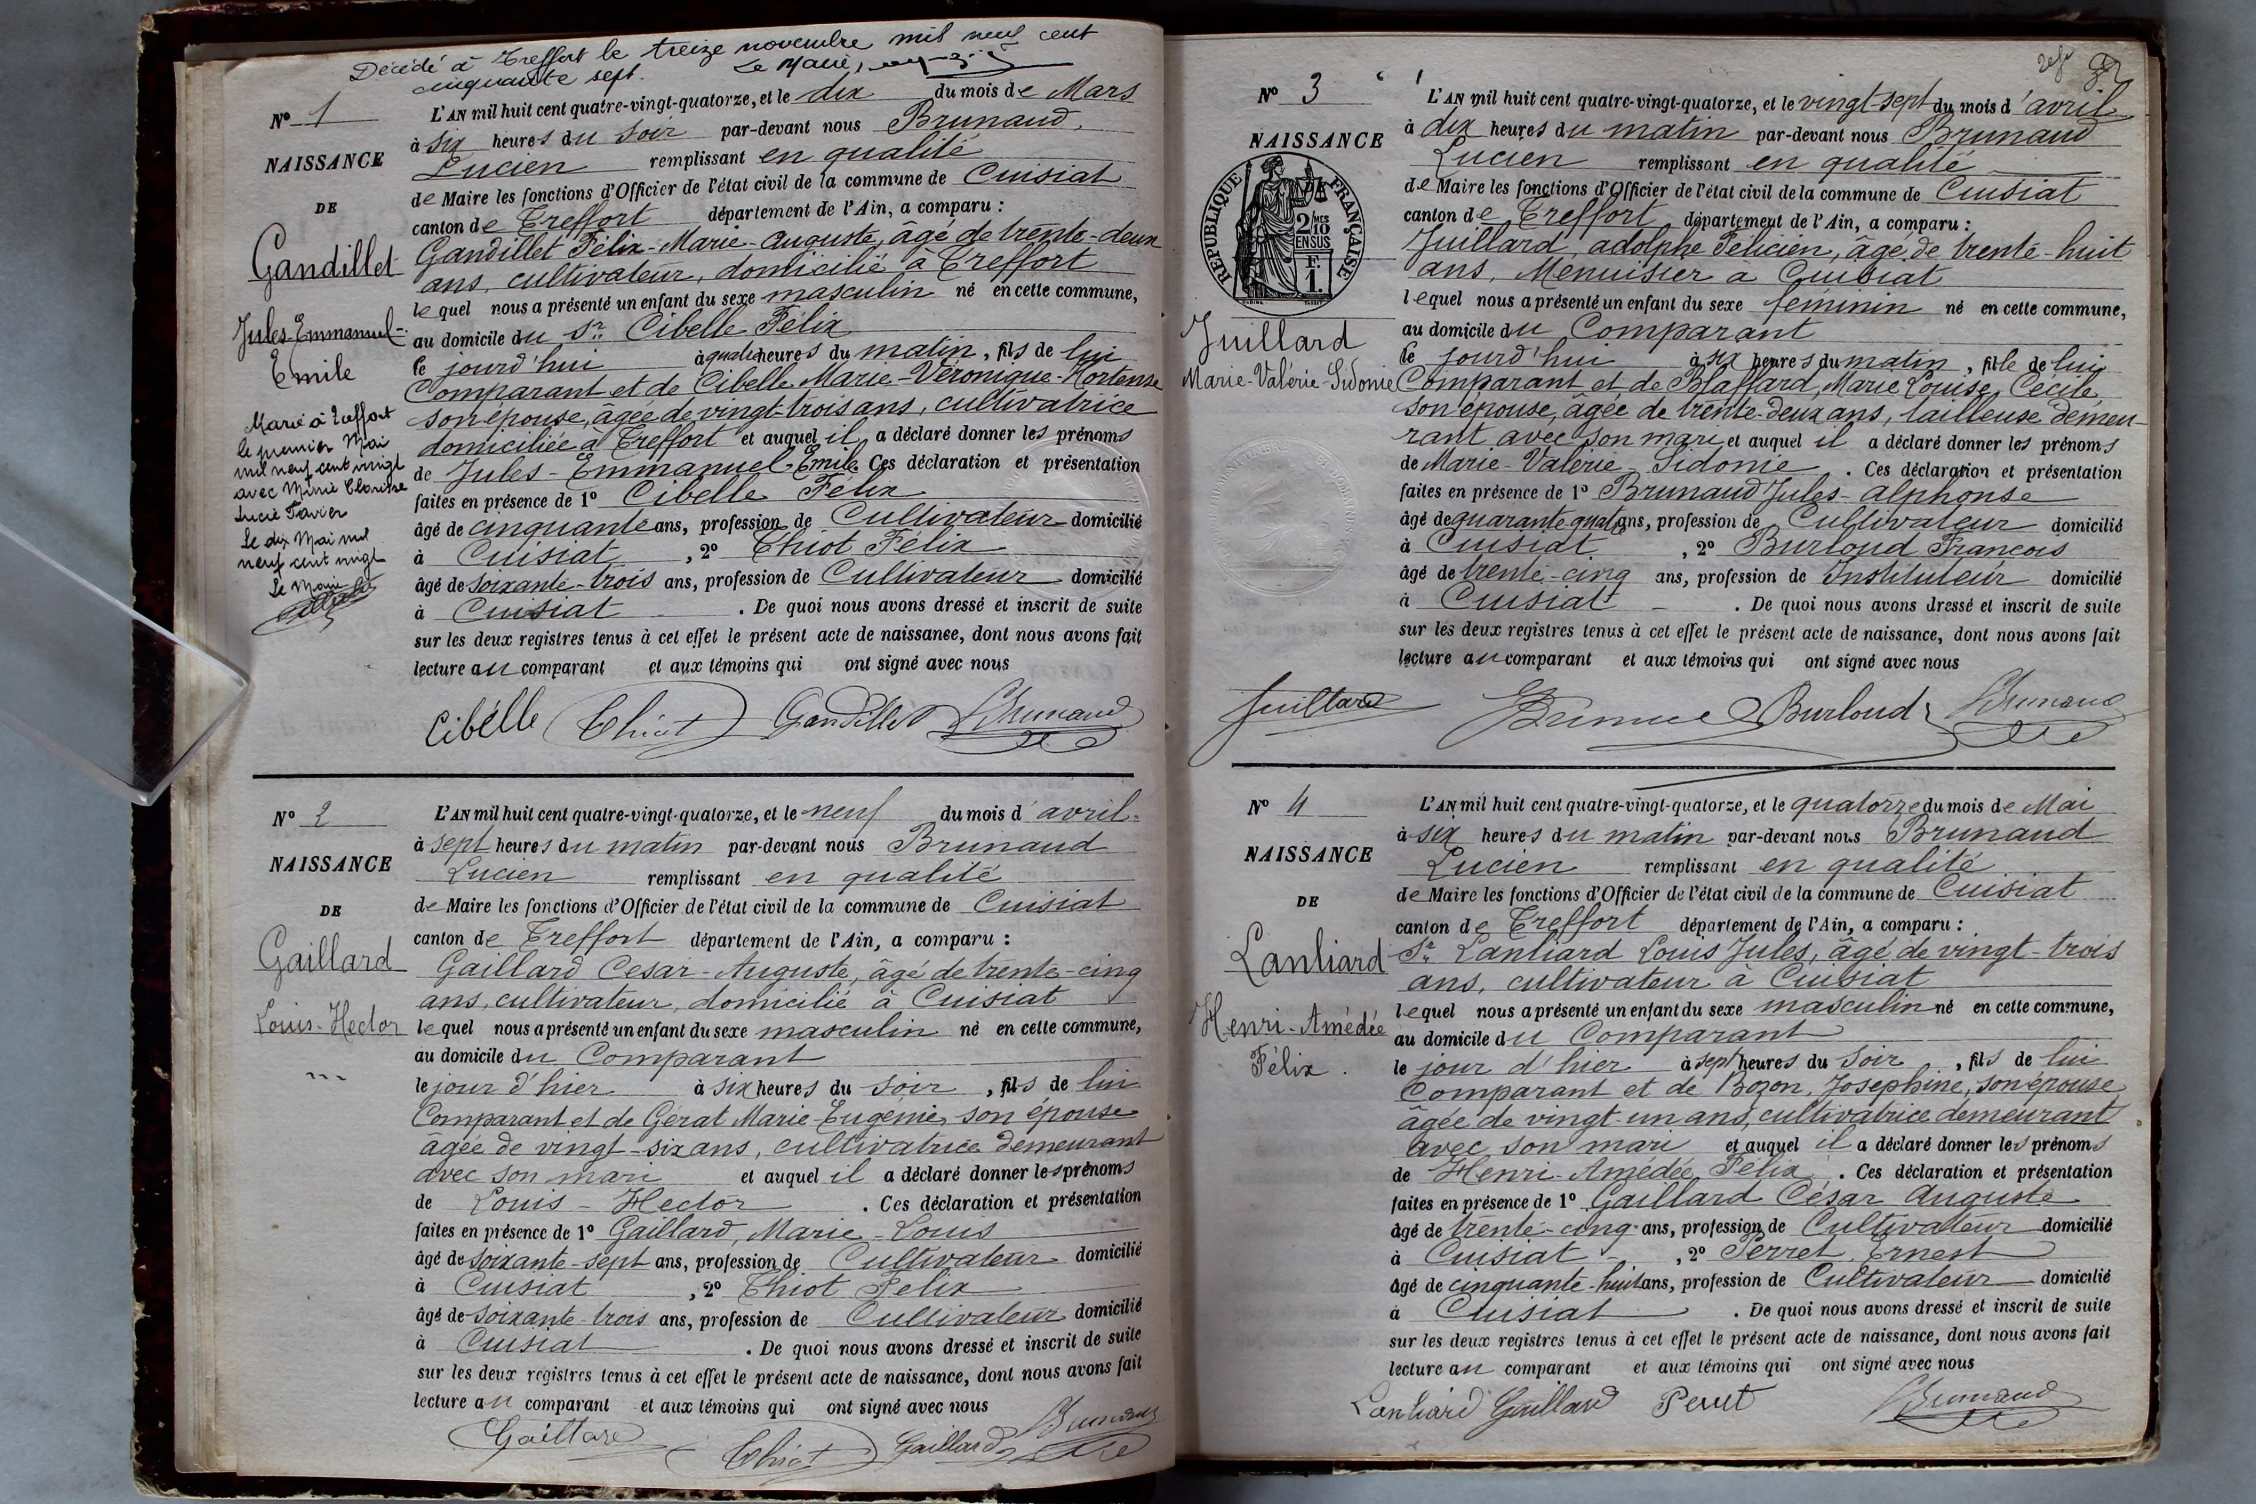 Décédé à Treffort le treize novembre mil neuf cent
cinquante sept. Le Maire,
N° 1
NAISSANCE
DE
Gandillet
Jules-Emmanuel-
Emile
Marié à Treffort
le premier Mai
mil neuf cent vingt
avec Marie Clarisse
Lucie Tavier
Le dix Mai mil
neuf cent vingt
Le Maire
L'AN mil huit cent quatre-vingt-quatorze, et le dix du mois de Mars
à six heures du soir par-devant nous Brunaud,
Lucien remplissant en qualité
de Maire les fonctions d'Officier de l'état civil de la commune de Cuisiat
canton de Treffort département de l'Ain, a comparu :
Gandillet Félix-Marie-Auguste, âgé de trente-deux
ans, cultivateur, domicilié à Treffort
lequel nous a présenté un enfant du sexe masculin né en cette commune,
au domicile du Sr. Cibelle Félix
le jourd'hui à quatre heures du matin, fils de lui
Comparant et de Cibelle Marie-Véronique-Hortense
son épouse, âgée de vingt-trois ans, cultivatrice
domiciliée à Treffort et auquel il a déclaré donner les prénoms
de Jules-Emmanuel-Emile. Ces déclaration et présentation
faites en présence de 1° Cibelle Félix
âgé de cinquante ans, profession de Cultivateur domicilié
à Cuisiat, 2° Thiot Félix
âgé de soixante-trois ans, profession de Cultivateur domicilié
à Cuisiat. De quoi nous avons dressé et inscrit de suite
sur les deux registres tenus à cet effet le présent acte de naissance, dont nous avons fait
lecture au comparant et aux témoins qui ont signé avec nous
Cibelle Thiot Gandillet LBrunaud
N° 2
NAISSANCE
DE
Gaillard
Louis-Hector
L'AN mil huit cent quatre-vingt-quatorze, et le neuf du mois d'avril
à sept heures du matin par-devant nous Brunaud
Lucien remplissant en qualité
de Maire les fonctions d'Officier de l'état civil de la commune de Cuisiat
canton de Treffort département de l'Ain, a comparu :
Gaillard Cesar-Auguste, âgé de trente-cinq
ans, cultivateur, domicilié à Cuisiat
lequel nous a présenté un enfant du sexe masculin né en cette commune,
au domicile du Comparant
le jour d'hier à six heures du soir, fils de lui
Comparant et de Gérat Marie-Eugénie, son épouse
âgée de vingt-six ans, cultivatrice demeurant
avec son mari et auquel il a déclaré donner les prénoms
de Louis-Hector. Ces déclaration et présentation
faites en présence de 1° Gaillard, Marie-Louis
âgé de soixante-sept ans, profession de Cultivateur domicilié
à Cuisiat, 2° Thiot Felix
âgé de soixante-trois ans, profession de Cultivateur domicilié
à Cuisiat. De quoi nous avons dressé et inscrit de suite
sur les deux registres tenus à cet effet le présent acte de naissance, dont nous avons fait
lecture au comparant et aux témoins qui ont signé avec nous
Gaillard Thiot Gaillard LBrunaud
N° 3
NAISSANCE
RÉPUBLIQUE FRANÇAISE
2/10 MES
EN SUS
F.
1.
Juillard
Marie-Valérie-Sidonie
L'AN mil huit cent quatre-vingt-quatorze, et le vingt-sept du mois d'avril
à dix heures du matin par-devant nous Brunaud
Lucien remplissant en qualité
de Maire les fonctions d'Officier de l'état civil de la commune de Cuisiat
canton de Treffort département de l'Ain, a comparu :
Juillard, adolphe Félicien, âgé de trente-huit
ans, Menuisier à Cuisiat
lequel nous a présenté un enfant du sexe féminin né en cette commune,
au domicile du Comparant
le jourd'hui à six heures du matin, fille de lui
Comparant et de Blaffard, Marie Louise, Cécile
son épouse, âgée de trente-deux ans, tailleuse demeu-
rant avec son mari et auquel il a déclaré donner les prénoms
de Marie-Valérie-Sidonie. Ces déclaration et présentation
faites en présence de 1° Brunaud Jules-alphonse
âgé de quarante quatre ans, profession de Cultivateur domicilié
à Cuisiat, 2° Burloud François
âgé de trente-cinq ans, profession de Instituteur domicilié
à Cuisiat. De quoi nous avons dressé et inscrit de suite
sur les deux registres tenus à cet effet le présent acte de naissance, dont nous avons fait
lecture au comparant et aux témoins qui ont signé avec nous
Juillard Burloud LBrunaud
N° 4
NAISSANCE
DE
Lanliard
Henri-Amédée
Félix.
L'AN mil huit cent quatre-vingt-quatorze, et le quatorze du mois de Mai
à six heures du matin par-devant nous Brunaud
Lucien remplissant en qualité
de Maire les fonctions d'Officier de l'état civil de la commune de Cuisiat
canton de Treffort département de l'Ain, a comparu :
Sr. Lanliard Louis Jules, âgé de vingt-trois
ans, cultivateur à Cuisiat
lequel nous a présenté un enfant du sexe masculin né en cette commune,
au domicile du Comparant
le jour d'hier à sept heures du soir, fils de lui
Comparant et de Bozon, Josephine, son épouse
âgée de vingt-un ans, cultivatrice demeurant
avec son mari et auquel il a déclaré donner les prénoms
de Henri-Amédée, Félix. Ces déclaration et présentation
faites en présence de 1° Gaillard César Auguste
âgé de trente-cinq ans, profession de Cultivateur domicilié
à Cuisiat, 2° Perret Ernest
âgé de cinquante-huit ans, profession de Cultivateur domicilié
à Cuisiat. De quoi nous avons dressé et inscrit de suite
sur les deux registres tenus à cet effet le présent acte de naissance, dont nous avons fait
lecture au comparant et aux témoins qui ont signé avec nous
Lanliard Gaillard Perret LBrunaud